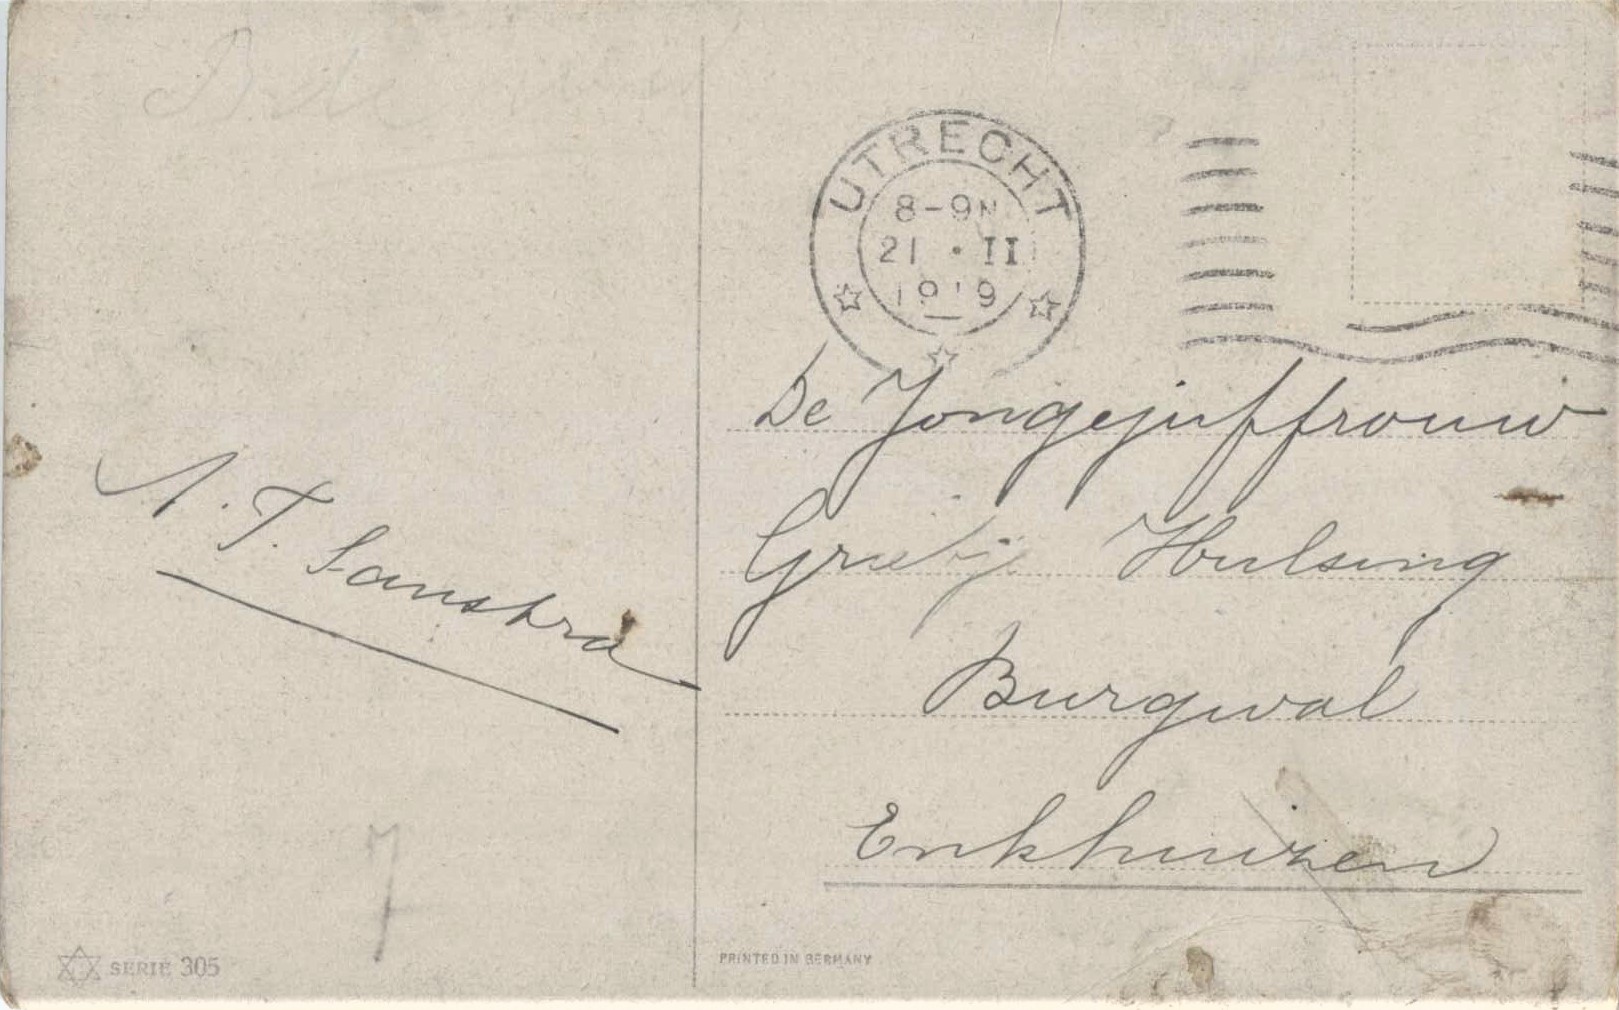 UTRECHT
8-9N
21 • II
1919
De Jongejuffrouw
Grietje Hulsing
Burgwal
Enkhuizen
A. T. Sanstra
7
SERIE 305
PRINTED IN GERMANY